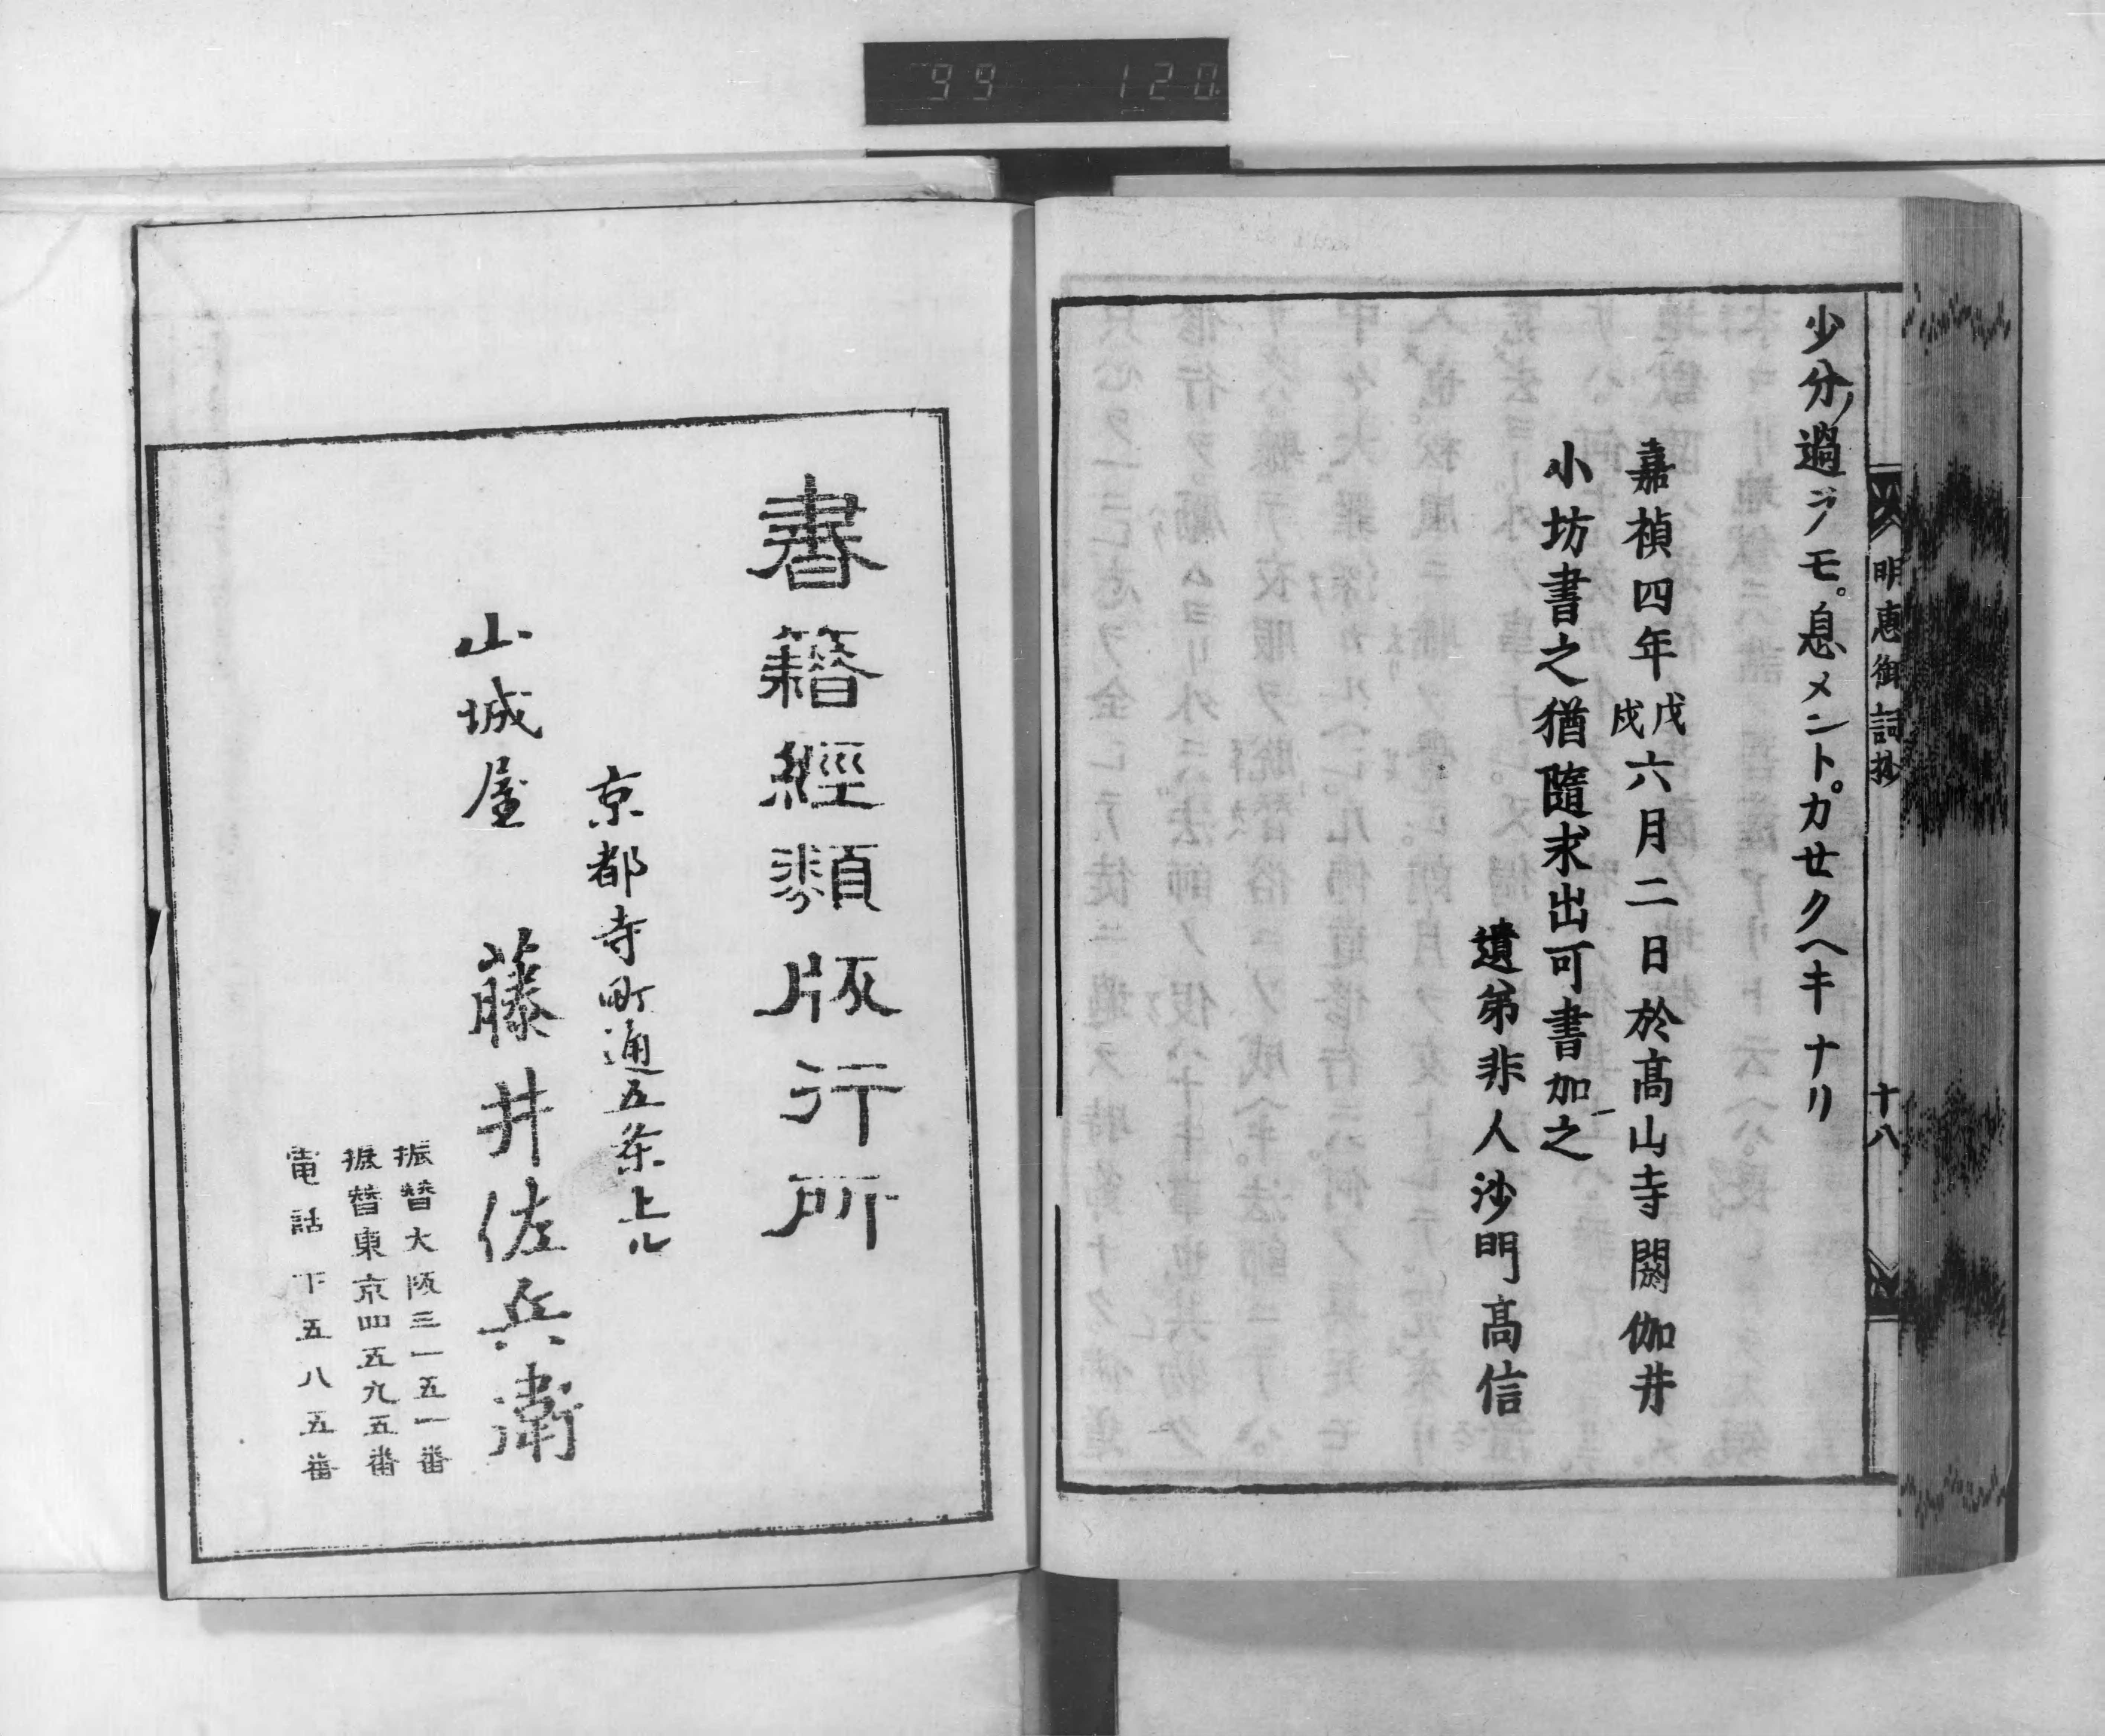 99 120
明恵御詞抄 十八
少分ノ過ヲノモ。息メント。カセクヘキナリ
嘉禎四年戊戌六月二日於高山寺閼伽井
小坊書之猶隨求出可書加之
遺弟非人沙門高信
書籍經類版行所
京都寺町通五条上ル
山城屋 藤井佐兵衛
振替大阪三一五一番
振替東京四五九五番
電話下五八五番